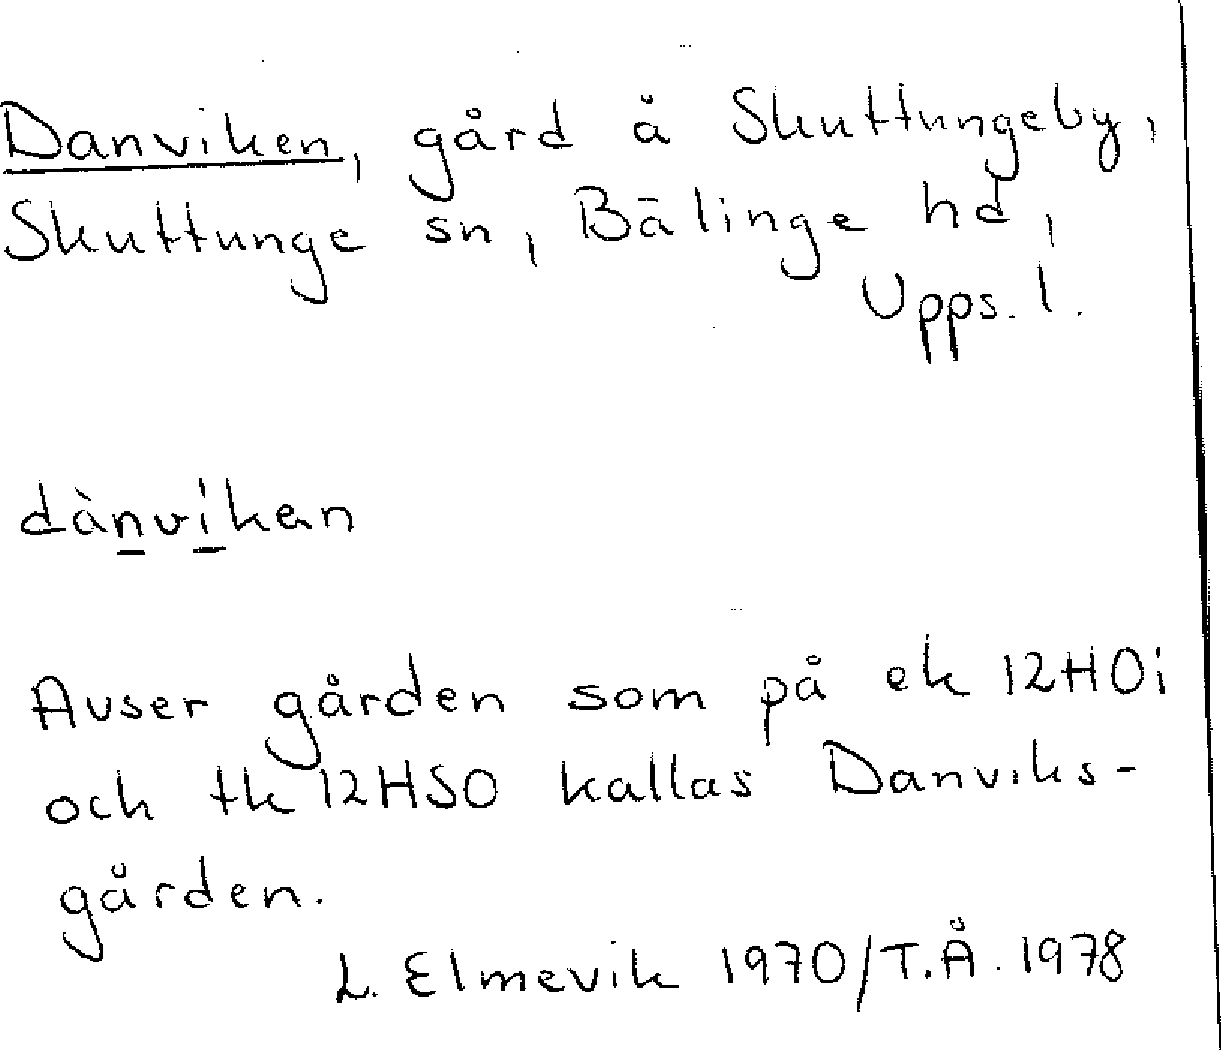 Danviken, gård å Skuttungeby,
Skuttunge sn, Bälinge hd,
Upps. l.
dànvi̍kan
Avser gården som på ek 12H0i
och tk 12HSO kallas Danviks-
gården.
L. Elmevik 1970/T.Å. 1978